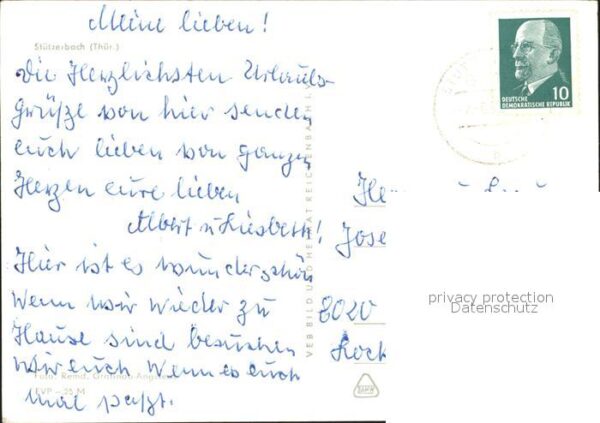 Meine lieben!
Stützerbach (Thür.)
die Herzlichsten Urlaubs-
Grüße von hier senden
euch lieben von ganzen
Herzen eure lieben
Albert u Liesbeth!
Hier ist es wunderschön
Wenn wir wieder zu
Hause sind besuchen
wir euch wenn es euch
mal paßt.
Foto: Reind.
EVP –
VEB BILD UND HEIMAT REICHENBACH
DEUTSCHE
DEMOKRATISCHE REPUBLIK
10
Jose
8020
Kock
privacy protection
Datenschutz